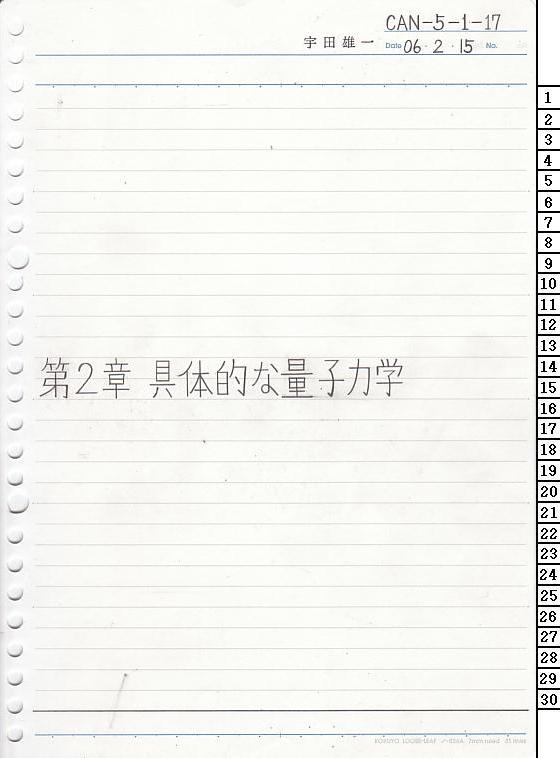 CAN-5-1-17
宇田雄一 Date 06・2・15 No.
第2章 具体的な量子力学
1
2
3
4
5
6
7
8
9
10
11
12
13
14
15
16
17
18
19
20
21
22
23
24
25
26
27
28
29
30
KOKUYO LOOSE-LEAF